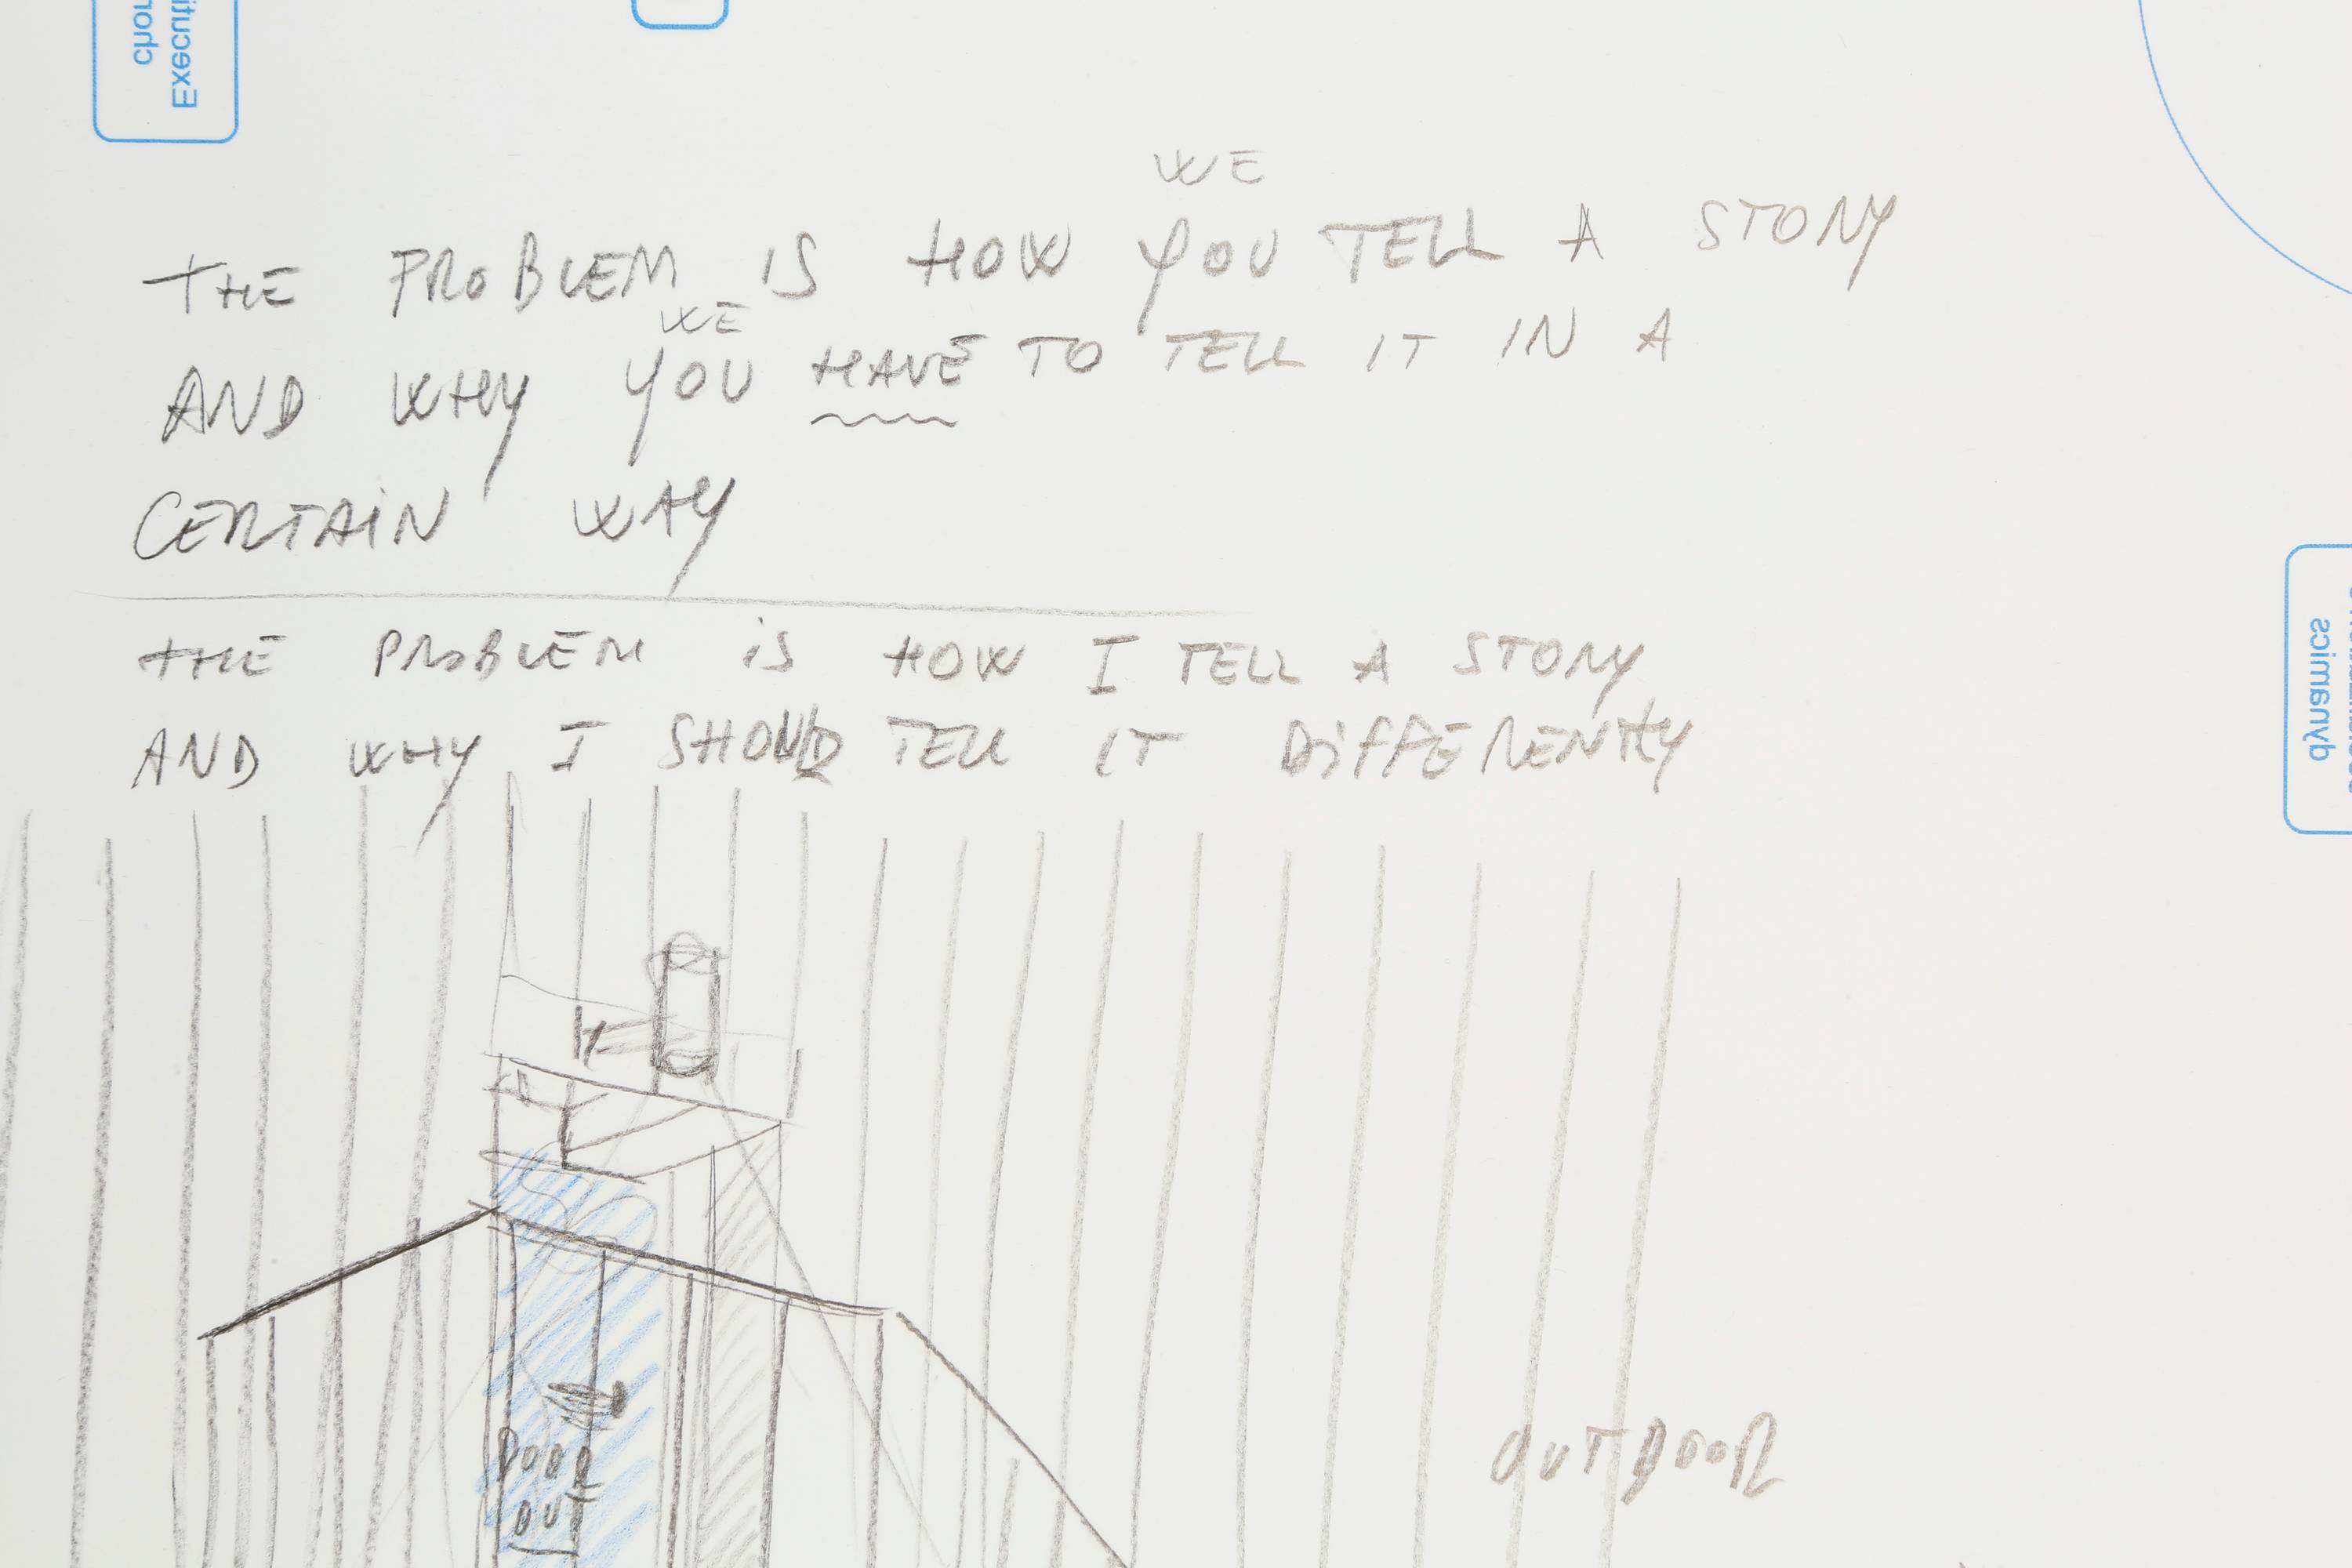 chor
Executi
WE
THE PROBLEM IS HOW YOU TELL A STORY
WE
AND WHY YOU HAVE TO TELL IT IN A
CERTAIN WAY
THE PROBLEM iS HOW I TELL A STORY
AND WHY I SHOULD TELL IT DiFFERENTLY
dynamics
DOOR
OUT
OUTDOOR